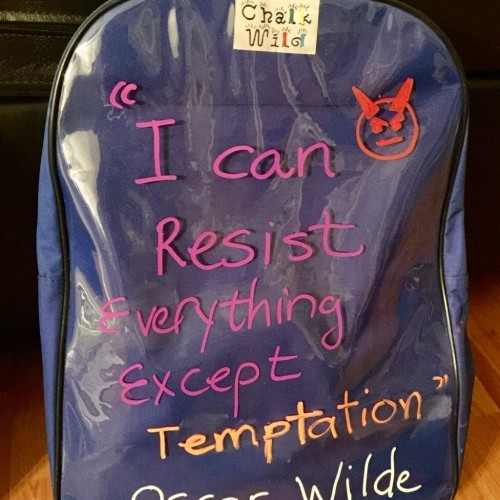 Chalk
Wild
"I can
Resist
Everything
Except
Temptation"
Oscar Wilde